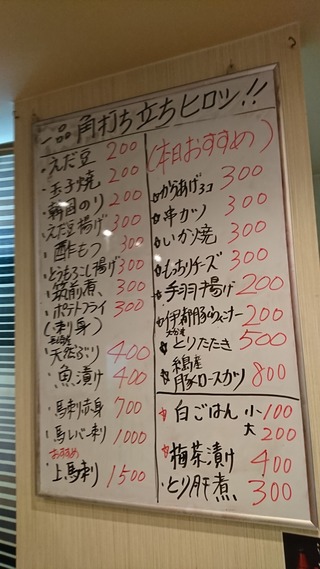 一品角打ち立ちヒロッ!!
えだ豆 200
玉子焼 200
韓国のり 200
えだ豆揚げ 300
酢もつ 300
とうもろこし揚げ 300
筑前煮、 300
ポテトフライ 300
(刺身)
天然ぶり 400
魚漬け 400
馬刺赤身 700
馬レバー刺 1000
おすすめ
上馬刺 1500
(本日おすすめ)
からあげ3コ 300
串カツ 300
いか焼 300
もっちりチーズ 300
手羽揚げ 200
伊都豚ウィンナー 200
とりたたき 500
糸島産
豚ロースカツ 800
白ごはん 小100
大200
梅茶漬け 400
とり肝煮 300